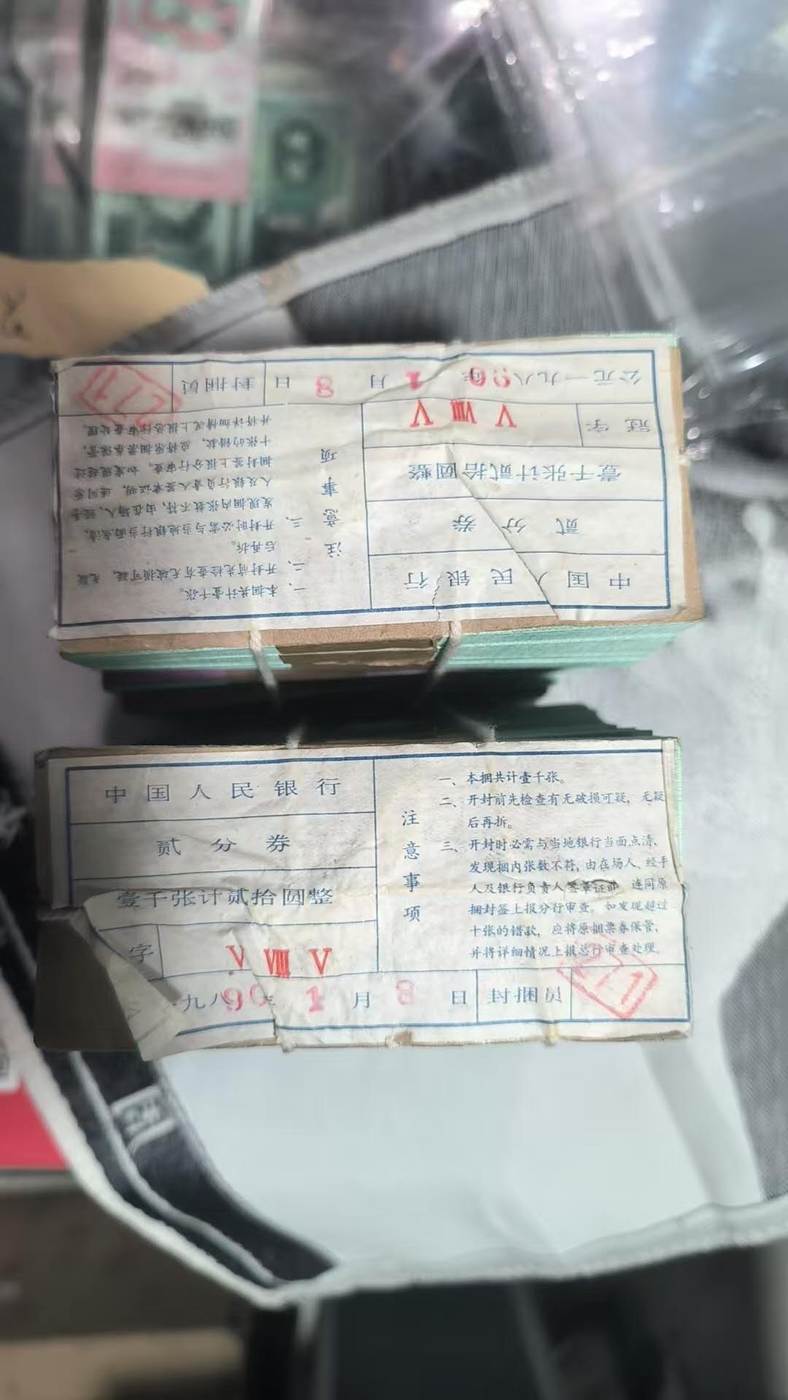 中国人民银行
贰分券
壹千张计贰拾圆整
冠字 V VIII V
公元一九八90年1月8日 封捆员 271
注意事项
一、本捆共计壹千张。
二、开封前先检查有无破损可疑，无疑
后再拆。
三、开封时必需与当地银行当面点清，
发现捆内张数不符，由在场人、经手
人及银行负责人签章证明，连同原
捆封签上报分行审查。如发现超过
十张的错款，应将原捆票券保管，
并将详细情况上报总行审查处理。
中国人民银行
贰分券
壹千张计贰拾圆整
字 V VIII V
九八90年1月8日 封捆员
注意事项
一、本捆共计壹千张。
二、开封前先检查有无破损可疑，无疑
后再拆。
三、开封时必需与当地银行当面点清，
发现捆内张数不符，由在场人、经手
人及银行负责人签章证明 连同原
捆封签上报分行审查。如发现超过
十张的错款，应将原捆票券保管，
并将详细情况上报总行审查处理。